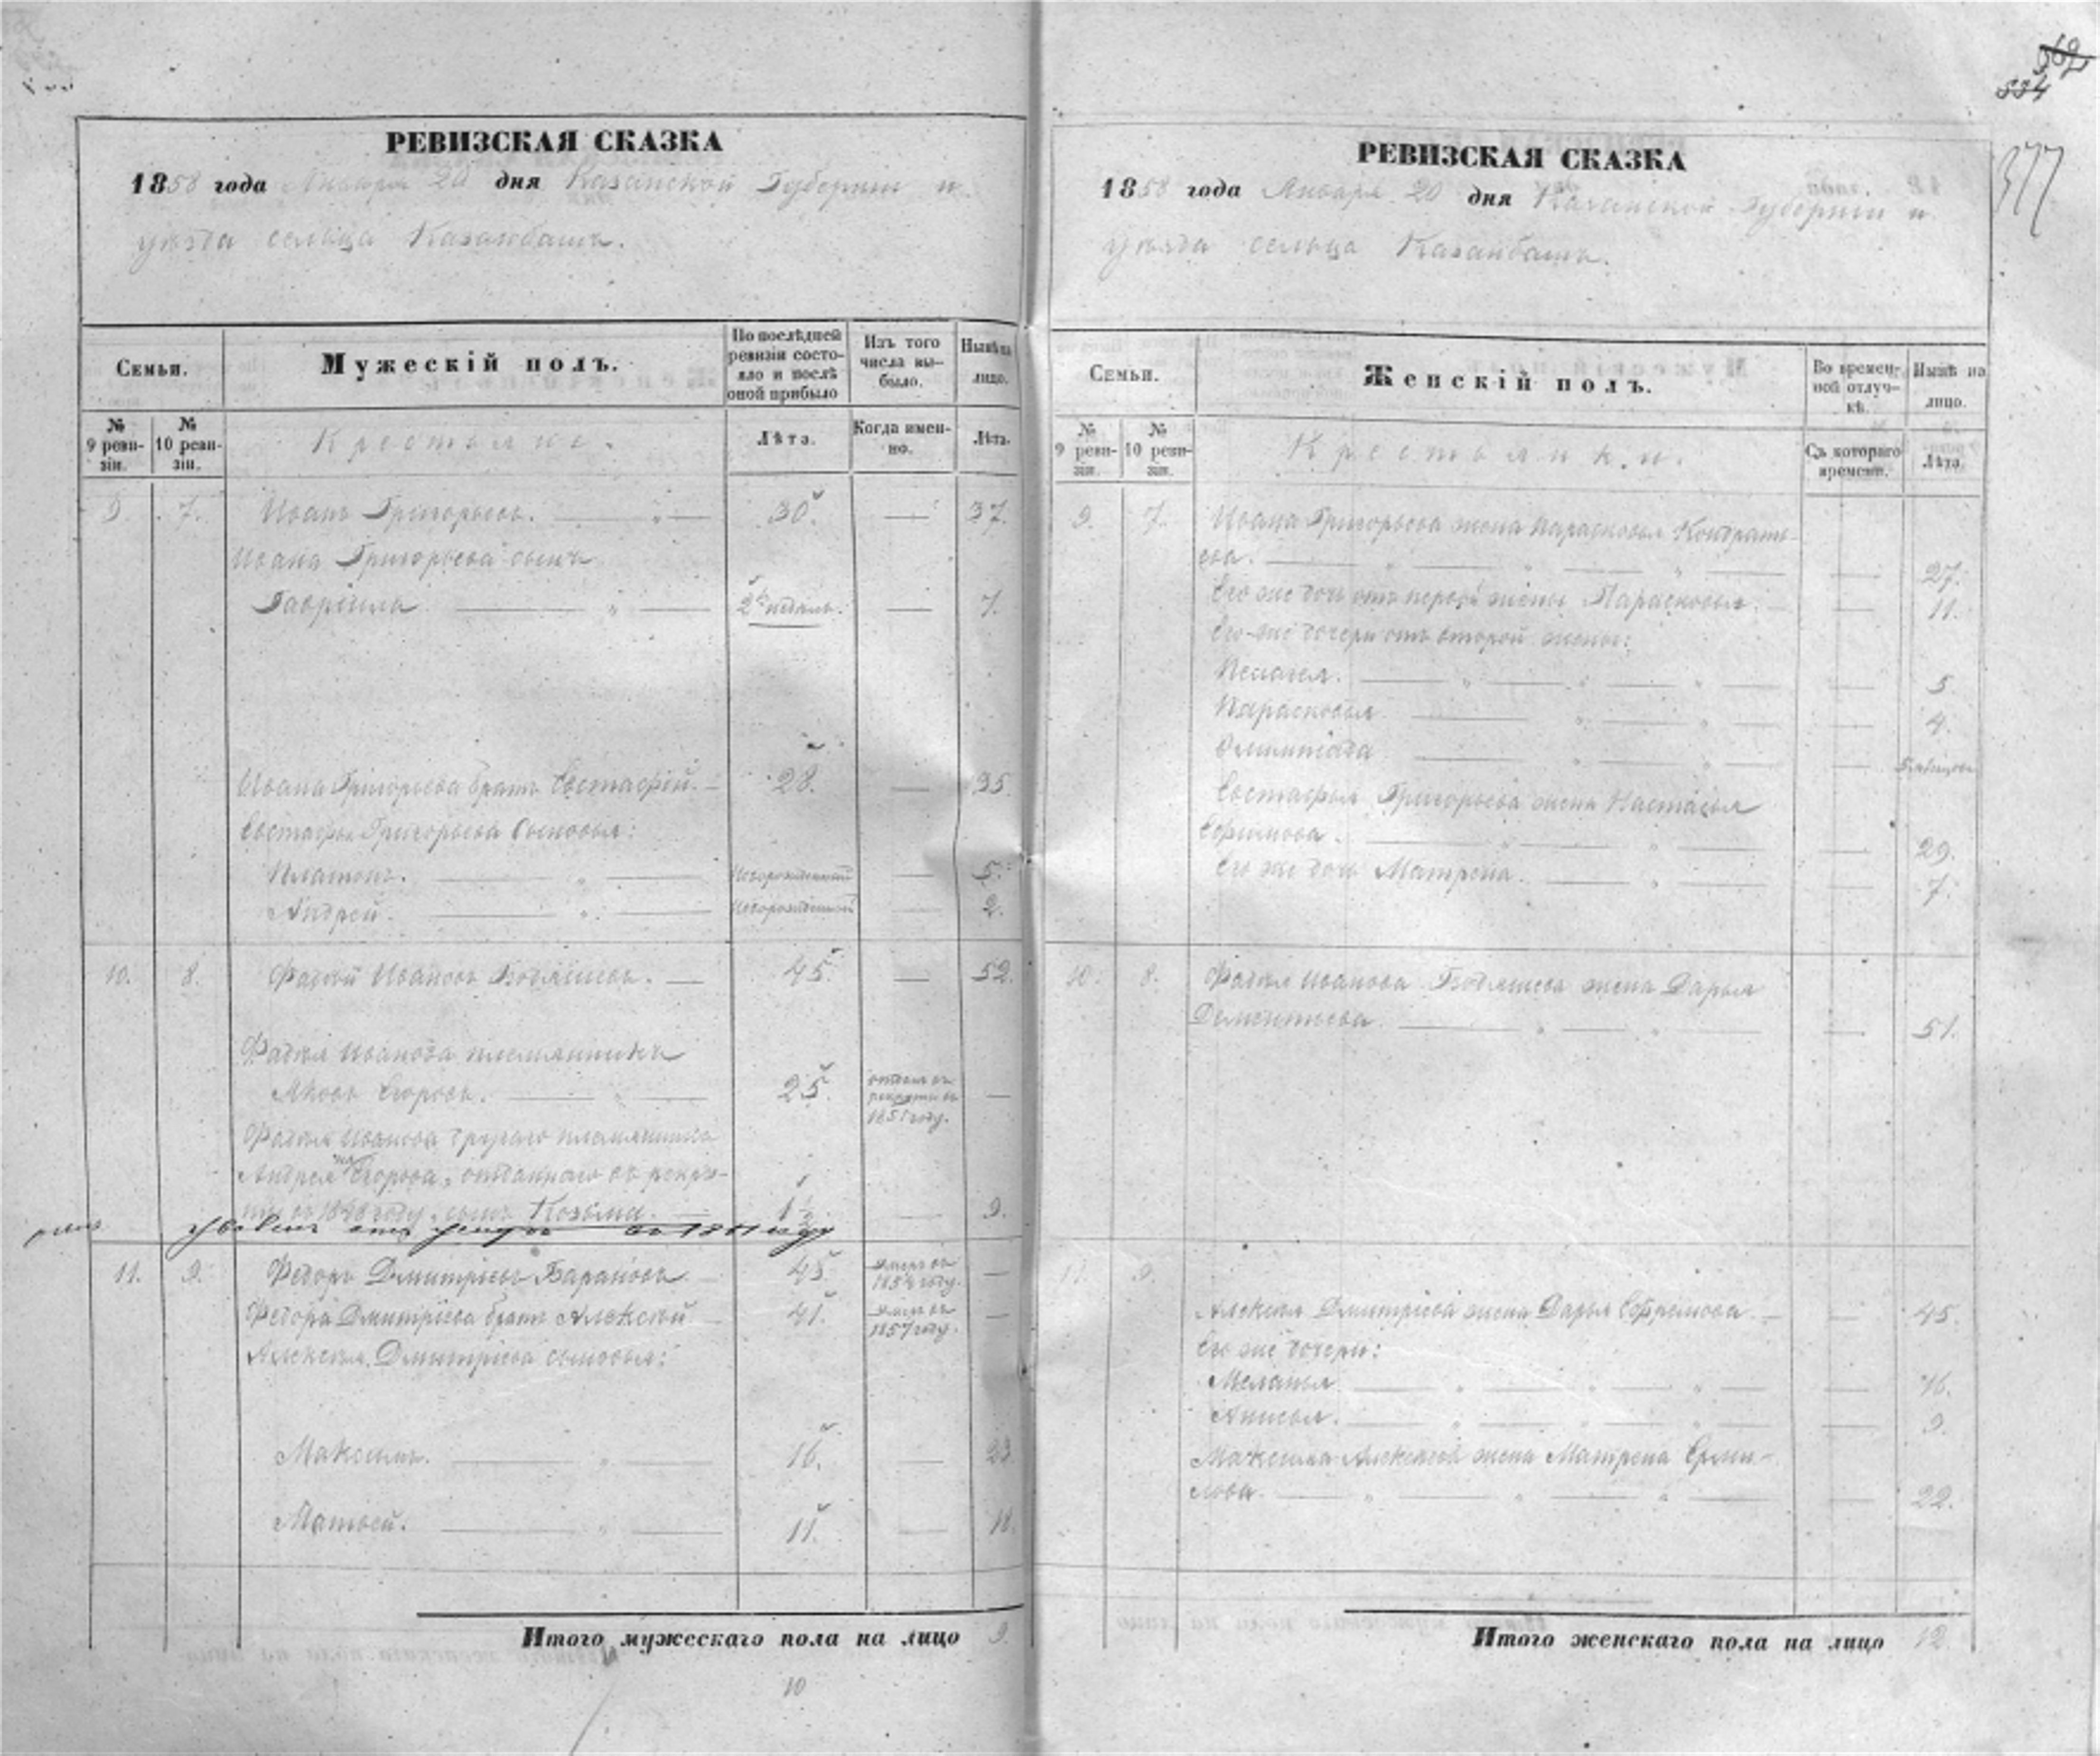 562
534
377
РЕВИЗСКАЯ СКАЗКА
1858 года Января 20 дня Казанской Губернии и
уѣзда сельца Казанбашъ.
Семьи.
Мужескій полъ.
По послѣдней ревизіи состояло и послѣ оной прибыло
Изъ того числа выбыло.
Нынѣ на лицо.
№ 9 ревизіи.
№ 10 ревизіи.
Крестьяне.
Лѣта.
Когда именно.
Лѣта.
9. 7. Иванъ Григорьевъ. 30. 37.
Ивана Григорьева сынъ
Гаврiила 2хъ недѣль. 7.
Ивана Григорьева братъ Евстафій. 28. 35.
Евстафья Григорьева сыновья:
Платонъ. Новорожденный 5.
Андрей. Новорожденный 2.
10. 8. Фадѣй Ивановъ 45. 52.
Фадѣя Иванова племянникъ
Яковъ Егоровъ. 25. отданъ въ рекруты въ 1851 году.
Фадѣя Иванова другаго племянника
Андрея Егорова, отданнаго въ рекру-
ты въ 1848 году, сынъ Козьма. 1½ 9.
11. 9. Федоръ Дмитріевъ Барановъ 45. умеръ въ 1854 году.
Федора Дмитріева братъ Алексѣй 41. умеръ въ 1857 году.
Алексѣя Дмитріева сыновья:
Максимъ. 16. 23.
Матвей. 11. 18.
Итого мужескаго пола на лицо 9.
10
РЕВИЗСКАЯ СКАЗКА
1858 года Января 20 дня Казанской Губерніи и
уѣзда сельца Казанбашъ.
Семьи.
Женскій полъ.
Во временной отлучкѣ.
Нынѣ на лицо.
№ 9 ревизіи.
№ 10 ревизіи.
Крестьянки.
Съ котораго времени.
Лѣта.
9. 7. Ивана Григорьева жена Парасковья Кондрать-
ева. 27.
Его же дочь отъ первой жены Парасковья. 11.
Его же дочери отъ второй жены:
Пелагея. 5.
Парасковья 4.
Олимпіада
Евстафья Григорьева жена Настасья
Ефимова. 29.
Его же дочь Матрена. 7.
10. 8. Фадѣя Иванова жена Дарья
Дементьева 51.
11. 9.
Алексѣя Дмитріева жена Дарья Ефремова 45.
Его же дочери:
Меланья 16.
Анисья. 9.
Максима Алексѣева жена Матрена Ерми-
лова. 22.
Итого женскаго пола на лицо 12.